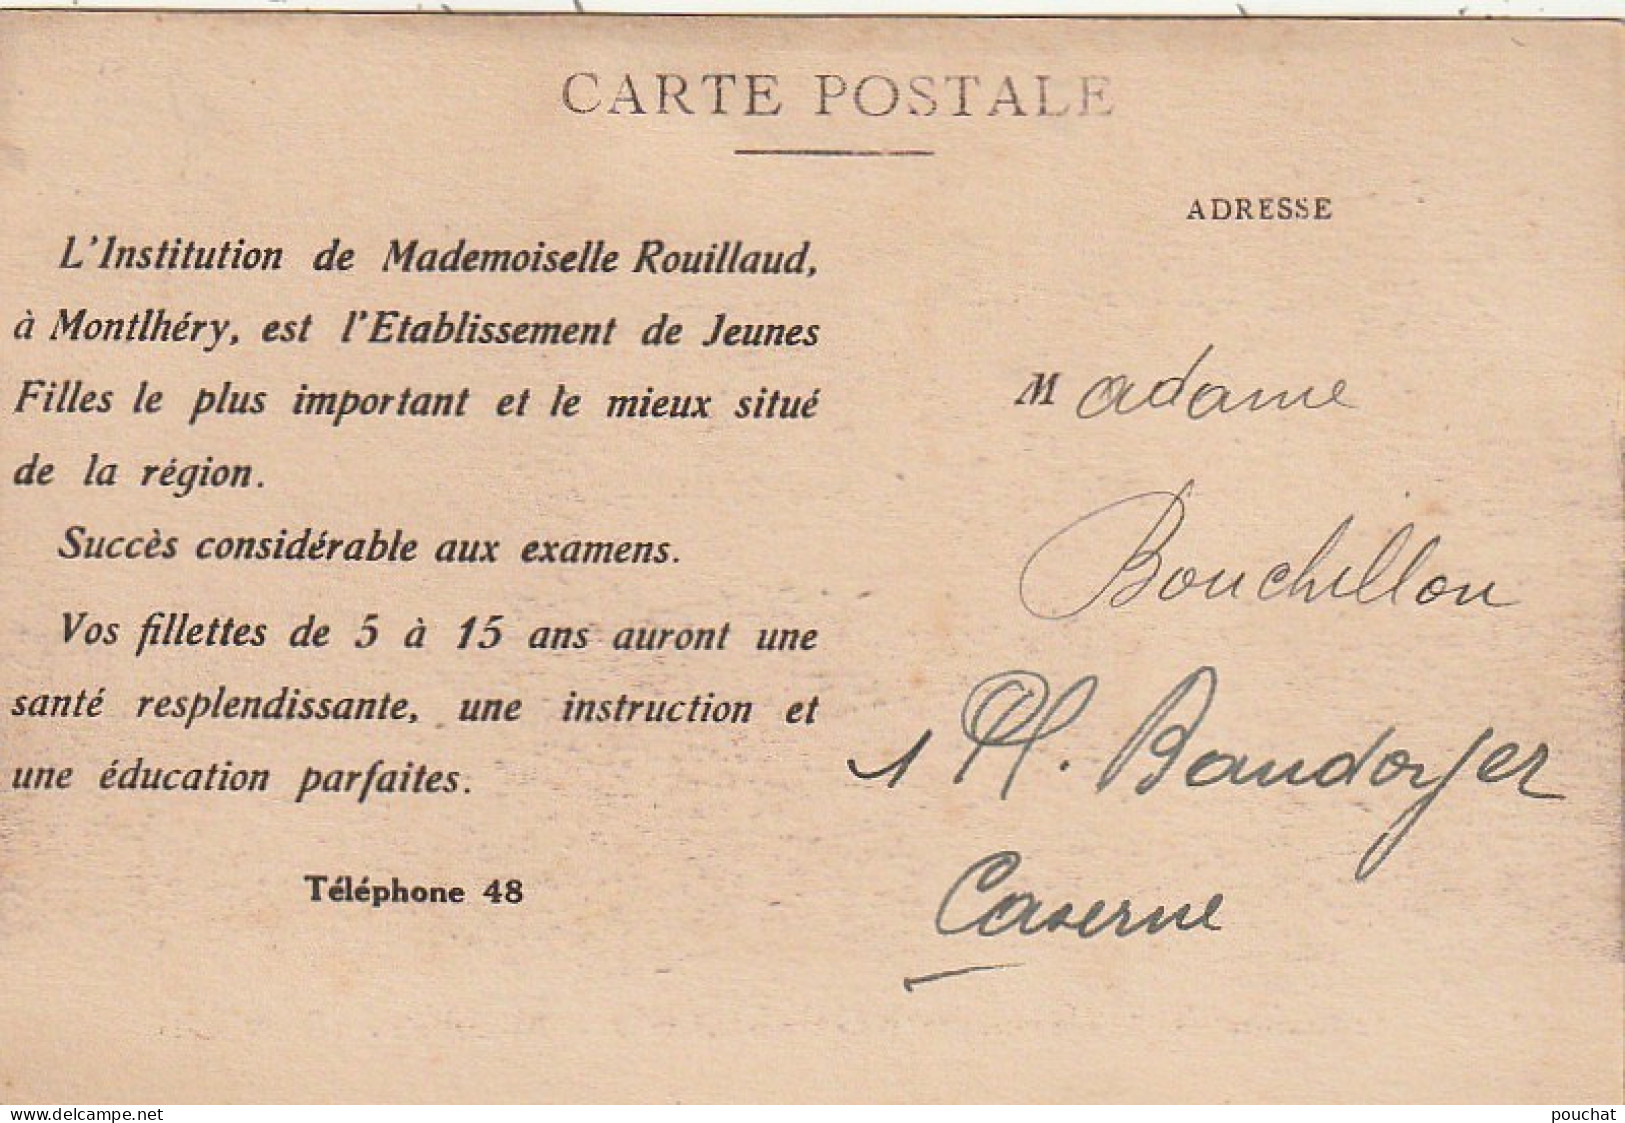 CARTE POSTALE
ADRESSE
L'Institution de Mademoiselle Rouillaud,
à Montlhéry, est l'Etablissement de Jeunes
Filles le plus important et le mieux situé
de la région.
Succès considérable aux examens.
Vos fillettes de 5 à 15 ans auront une
santé resplendissante, une instruction et
une éducation parfaites.
Téléphone 48
Madame
Bouchillou
1 Pl. Baudoyer
Caserne
www.delcampe.net
pouchat